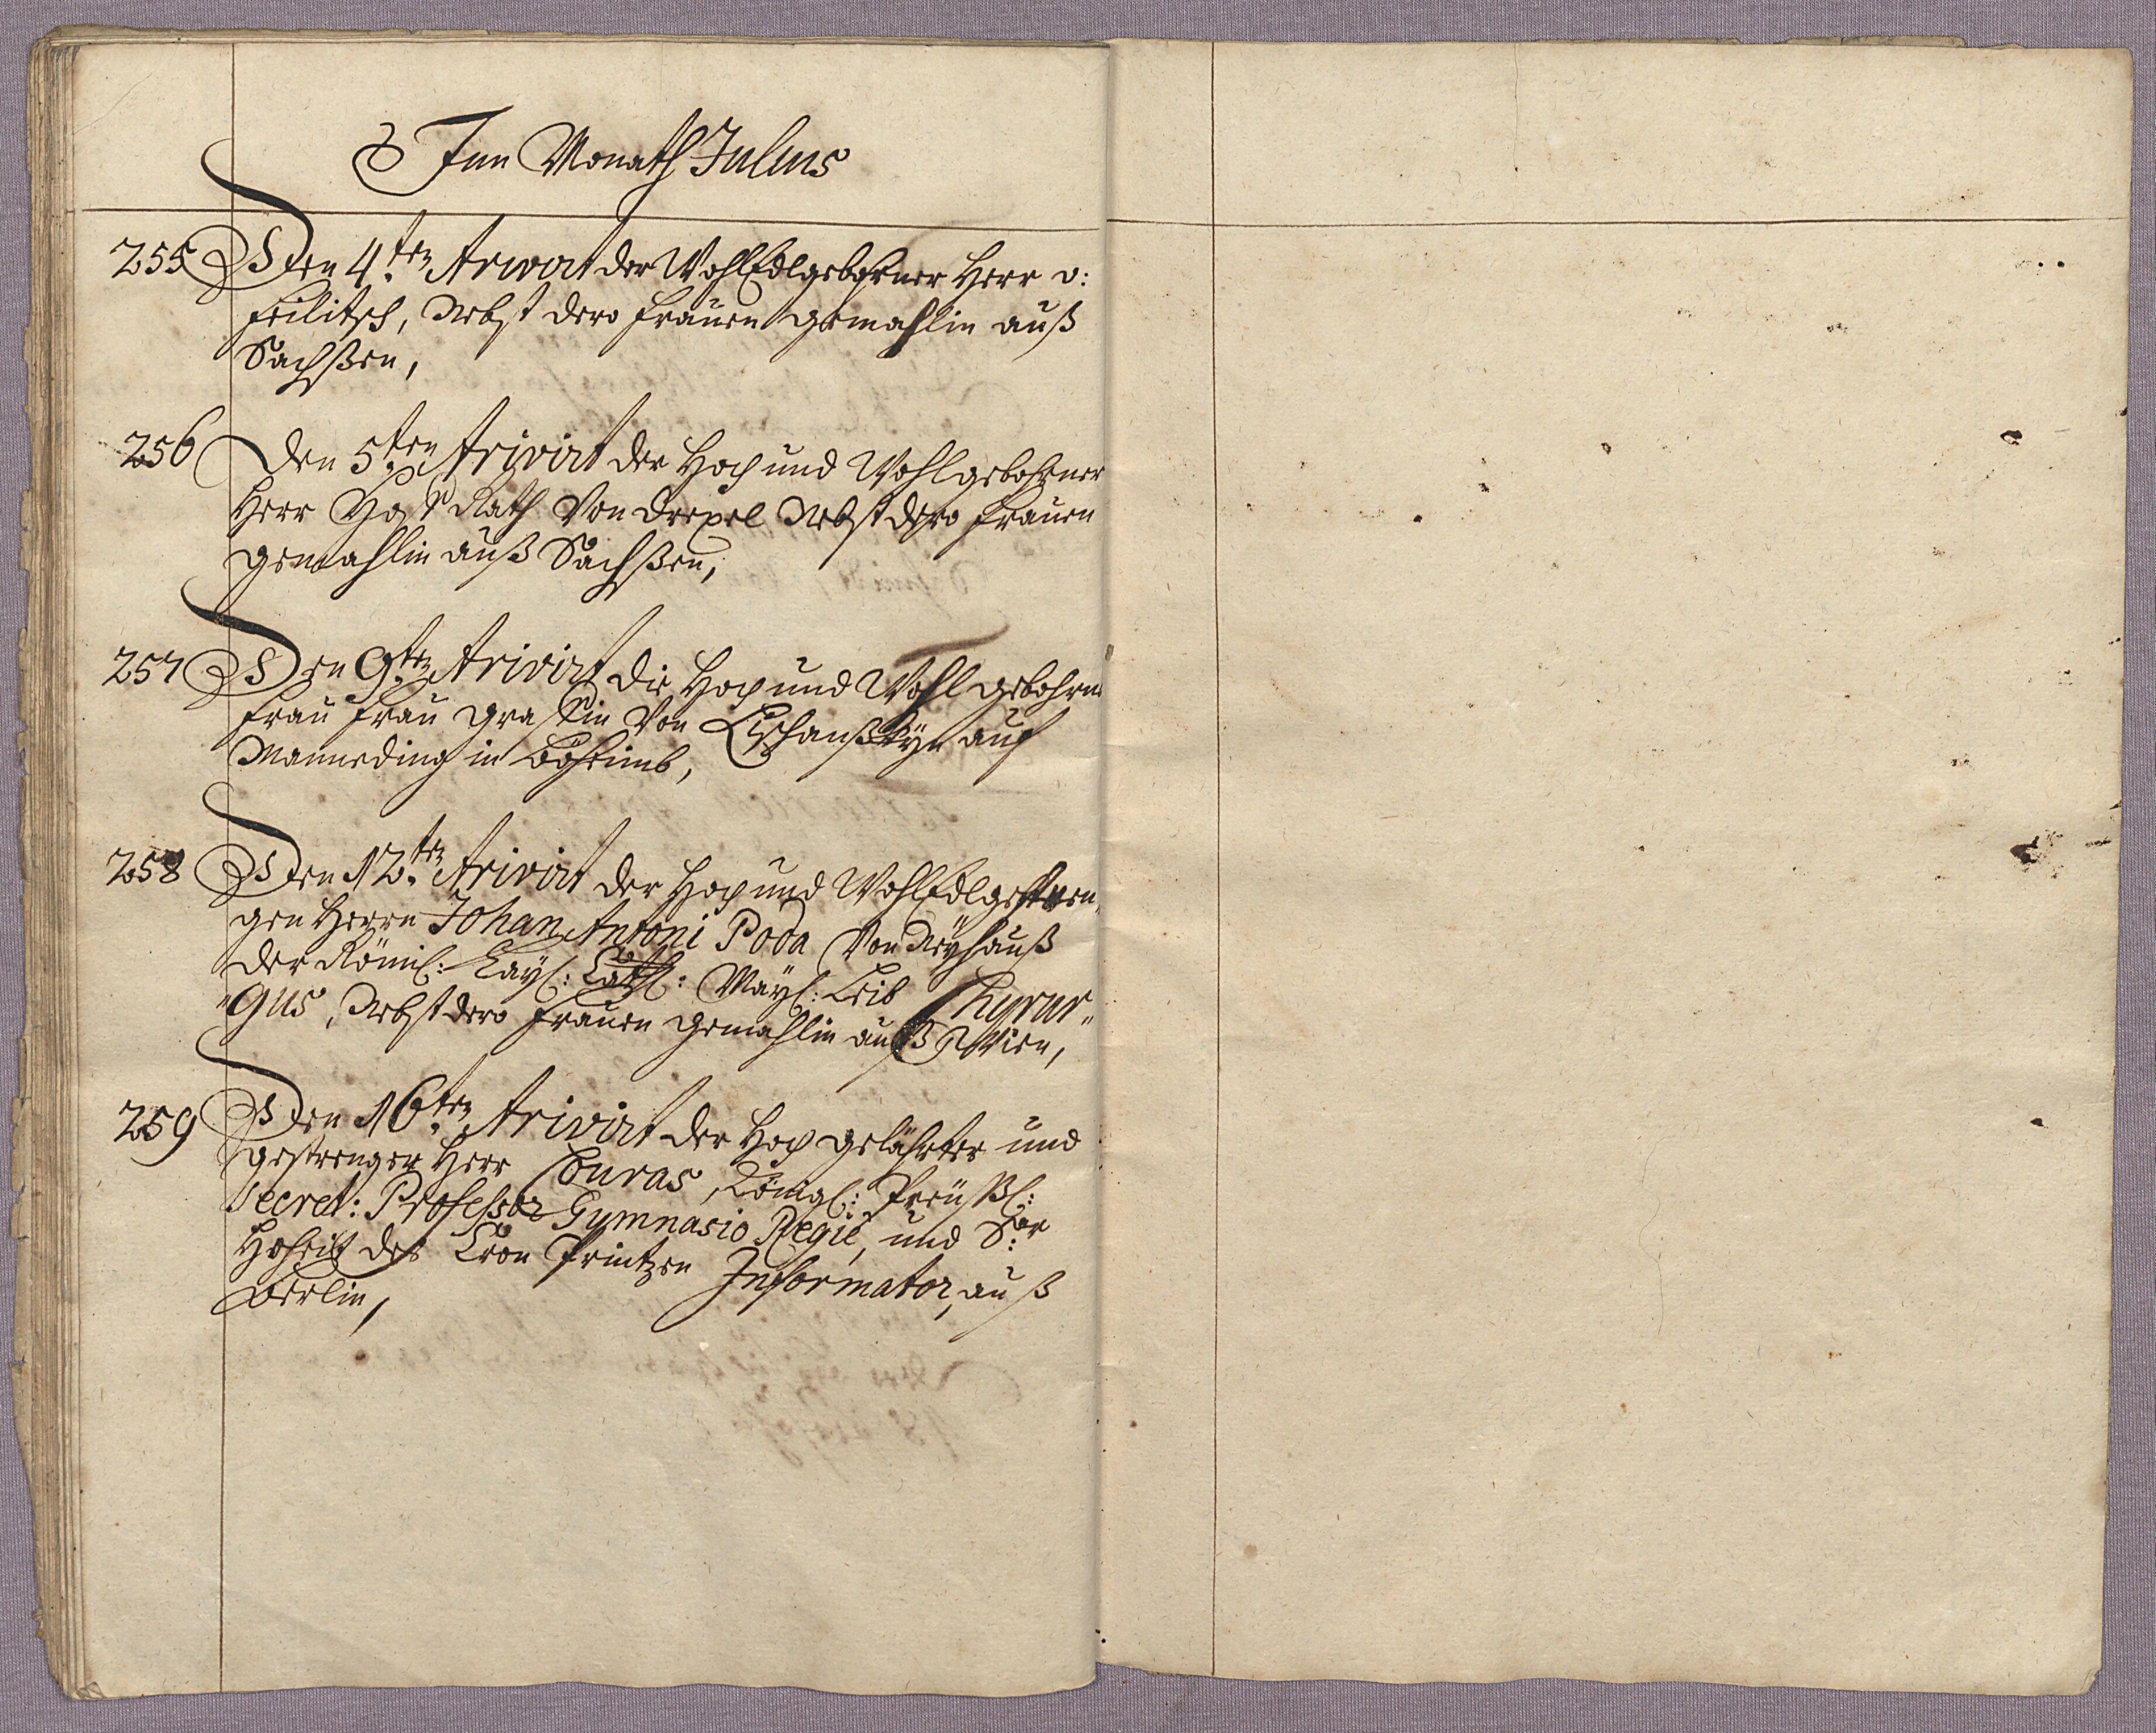 Inn Monath Julius
255 Den 4ten Arivirt der WohlEdlgebohrner Herr v:
Feilitsch, Nebst dero Frauen gemahlin auß
Sachßen,
256 Den 5ten Arivirt der Hoch und Wohlgebohrner
Herr Hoff Rath Von Drexel Nebst dero Frauen
gemahlin auß Sachßen,
257 Den 9ten Arivirt die Hoch und Wohlgebohrne
Frau Frau graffin Von auf
in Böheimb,
258 Den 12ten Arivirt der Hoch und WohlEdlgestren„
gen Herrn Johan Antoni Poda Von Neyhauß
der Römisch: Kayß: Cath: Mayß: Leib Chyrur„
„Gus, Nebst dero Frauen gemahlin auß Wien,
259 Den 16ten Arivirt der Hoch gelährter und
gestrenger Herr Couras, Königl: Preüßl:
Secret: Professor Gymnasio Regie, und Sr:
Hoheit des Cron Printzen Informator, auß
Berlin,